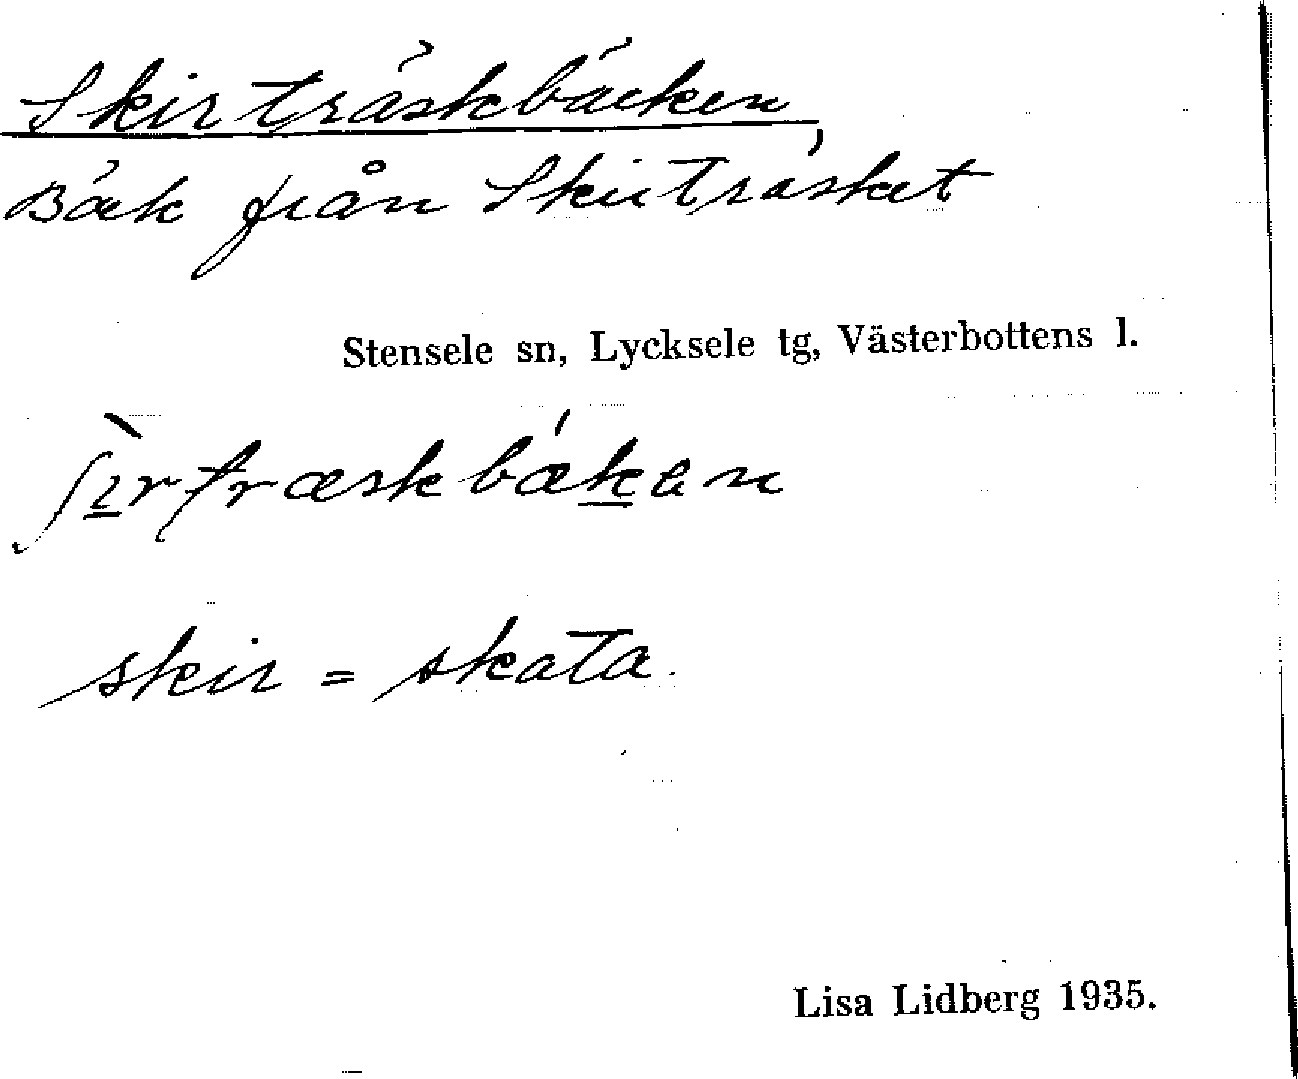 Skirträskbäcken
Bäck från Skirträsket
Stensele sn, Lycksele tg, Västerbottens l.
ʃɪ̠̀rtræskbǽk̠ən
skir = skata.
Lisa Lidberg 1935.